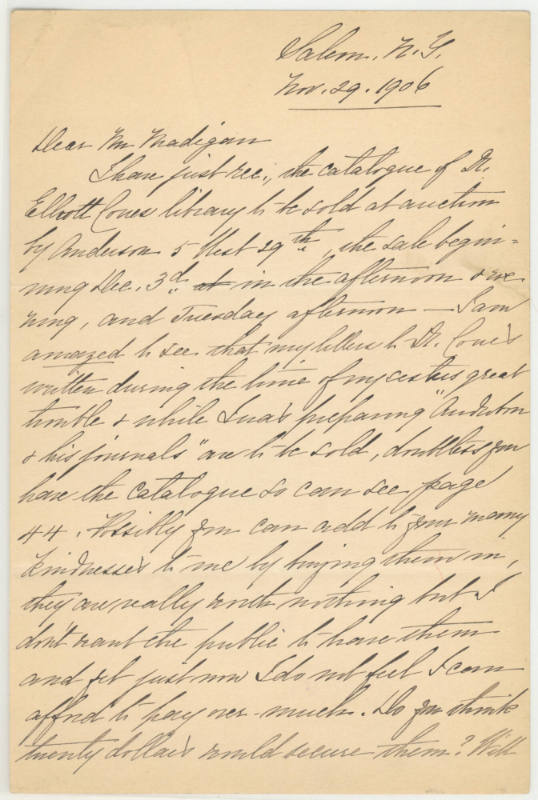 Salem. N. Y.
Nov. 29. 1906
Dear Mr Madigan
I have just rec., the catalogue of Dr.
Elliott Coues library to be sold at auction
by Anderson 5 West 29th, the sale begin-
ning Dec. 3d in the afternoon & eve
ning, and Tuesday afternoon — I am
amazed to see that my letters to Dr. Coues
written during the time of my great
trouble & while I was preparing "Audubon
& his journals" are to be sold, doubtless you
have the catalogue so can see page
44. Possibly you can add to your many
kindnesses to me by buying them in,
they are really worth nothing but I
don't want the public to have them
and yet just now I do not feel I can
afford to pay over-much. Do you think
twenty dollars would secure them? Will